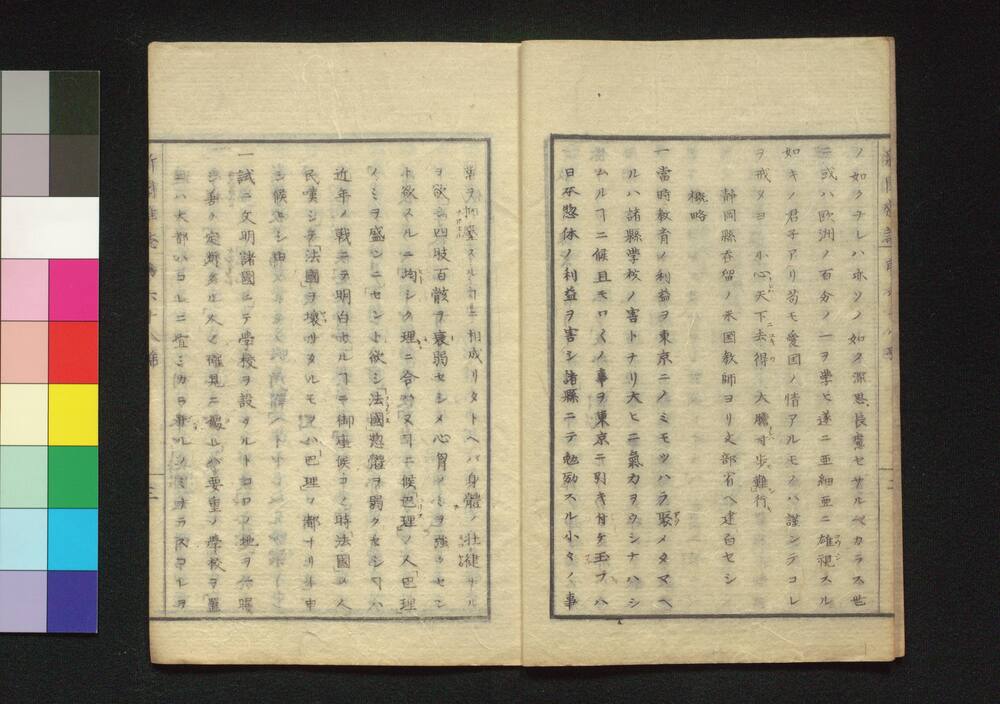 ノ如クヲレハホソノ如タ深思長慮セサルベカラス世
ニ或ハ欧洲ノ百分ノ一ヲ學ヒ遂ニ亜細亜ニ雄視スル
如キノ君子アリ苟モ愛国ノ情アルモノハ謹ンテコレ
ヲ戒メヨ 小心天下去得 大膽寸歩難行
静岡縣在留ノ米国教師ヨリ文部省ヘ建白セシ
概略
一當時教育ノ利益ヲ東京ニノミモツハラ聚メタマヘ
ルハ諸縣学校ノ害トナリ大ヒニ氣力ヲウシナハシ
ムルヿニ候且モロくノ事ヲ東京ニ引キ付ケ玉フハ
日本惣体ノ利益ヲ害シ諸縣ニテ勉励スル小々ノ事
業ヲ スルヿニ相成リタトヘバ身體ノ壮健ナル
ヲ欲 四肢百骸ヲ衰弱セシメ心胃ノミヲ強クセン
ト欲スルニ均シク理ニ合ハヌヿニ候巴理ノ人巴理
ノミヲ盛ンニセント欲シ法國惣體ヲ弱クセシヿハ
近年ノ戦ニテ明白ナルヿニ御座候コノ時法國ノ人
民嘆シテ法國ヲ壊リタルモノハ巴理ノ都ナリト申
候
一試ニ文明諸國ニテ學校ヲ設タルトコロノ地ヲ
定 人ノ確見ニ據レハ要重ノ學校ヲ置
ハ大都ハコレニ宜シカラ ルノミナラスコレヲ
二
三